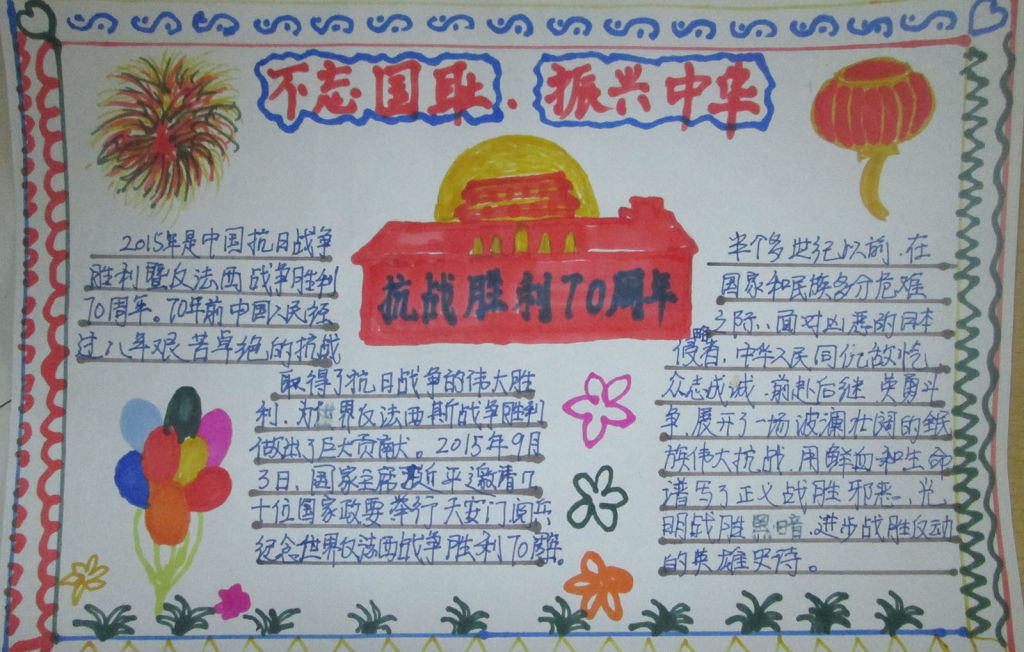 不忘国耻.振兴中华
抗战胜利70周年
2015年是中国抗日战争
胜利暨反法西战争胜利
70周年。70年前中国人民经
过八年艰苦卓绝的抗战
取得了抗日战争的伟大胜
利、为世界反法西斯战争胜利
做出了巨大贡献。2015年9月
3日,国家主席习近平邀请几
十位国家政要举行天安门阅兵
纪念世界反法西战争胜利70周年。
半个多世纪以前.在
国家和民族多分危难
之际、面对凶恶的日本
侵略者,中华人民同仇敌忾,
众志成城.前赴后继.英勇斗
争,展开了一场波澜壮阔的
旗伟大抗战.用鲜血和生命
谱写了正义战胜邪恶、光
明战胜黑暗.进步战胜反动
的英雄史诗。